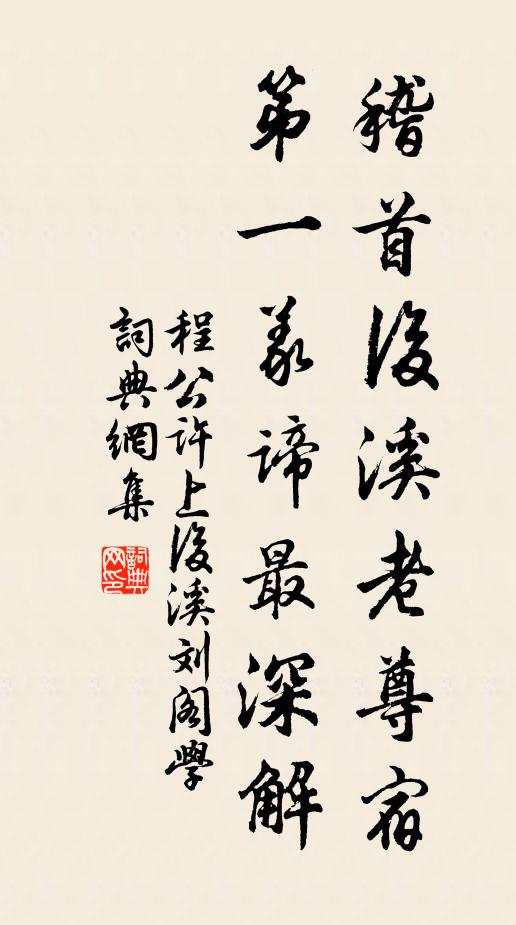 稽首後溪老尊宿
第一義諦最深解
程公許上後溪刘阁學
詞典網集
詞典網印